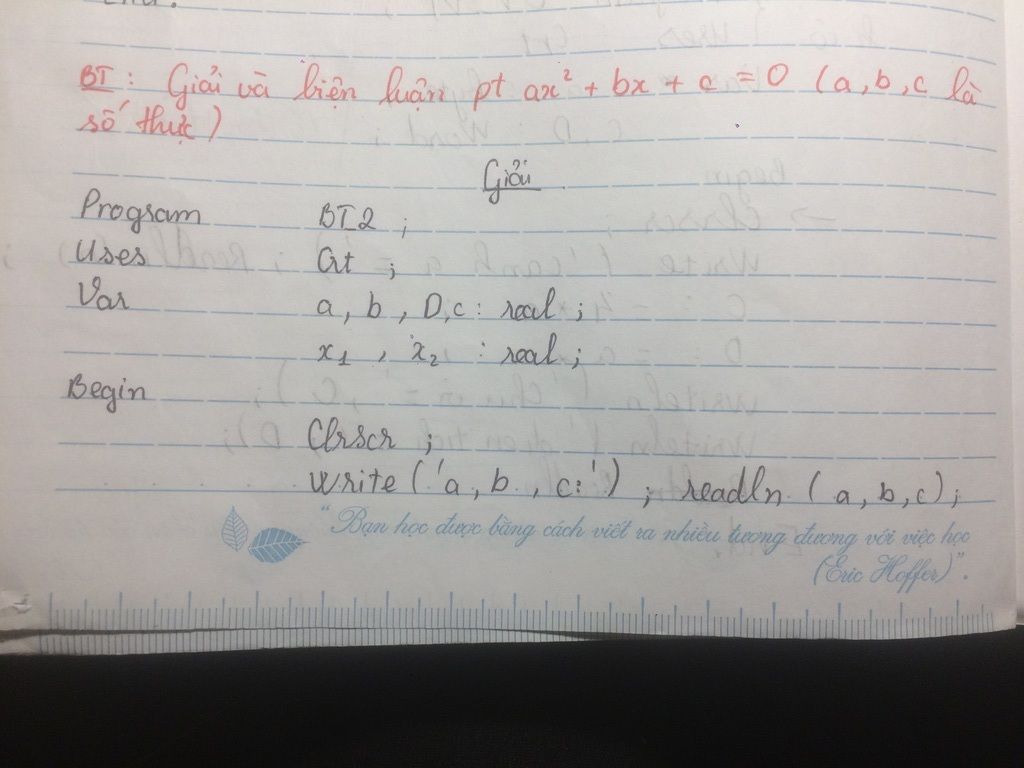 BT: Giải và biện luận pt ax² + bx + c = 0 (a, b, c là
số thực)
Giải
Program BT2 ;
Uses Crt ;
Var a, b, D, c : real ;
x₁ , x₂ : real ;
Begin
Clrscr ;
Write ('a, b, c:') ; readln (a, b, c) ;
"Bạn học được bằng cách viết ra nhiều tương đương với việc học
(Eric Hoffer)".